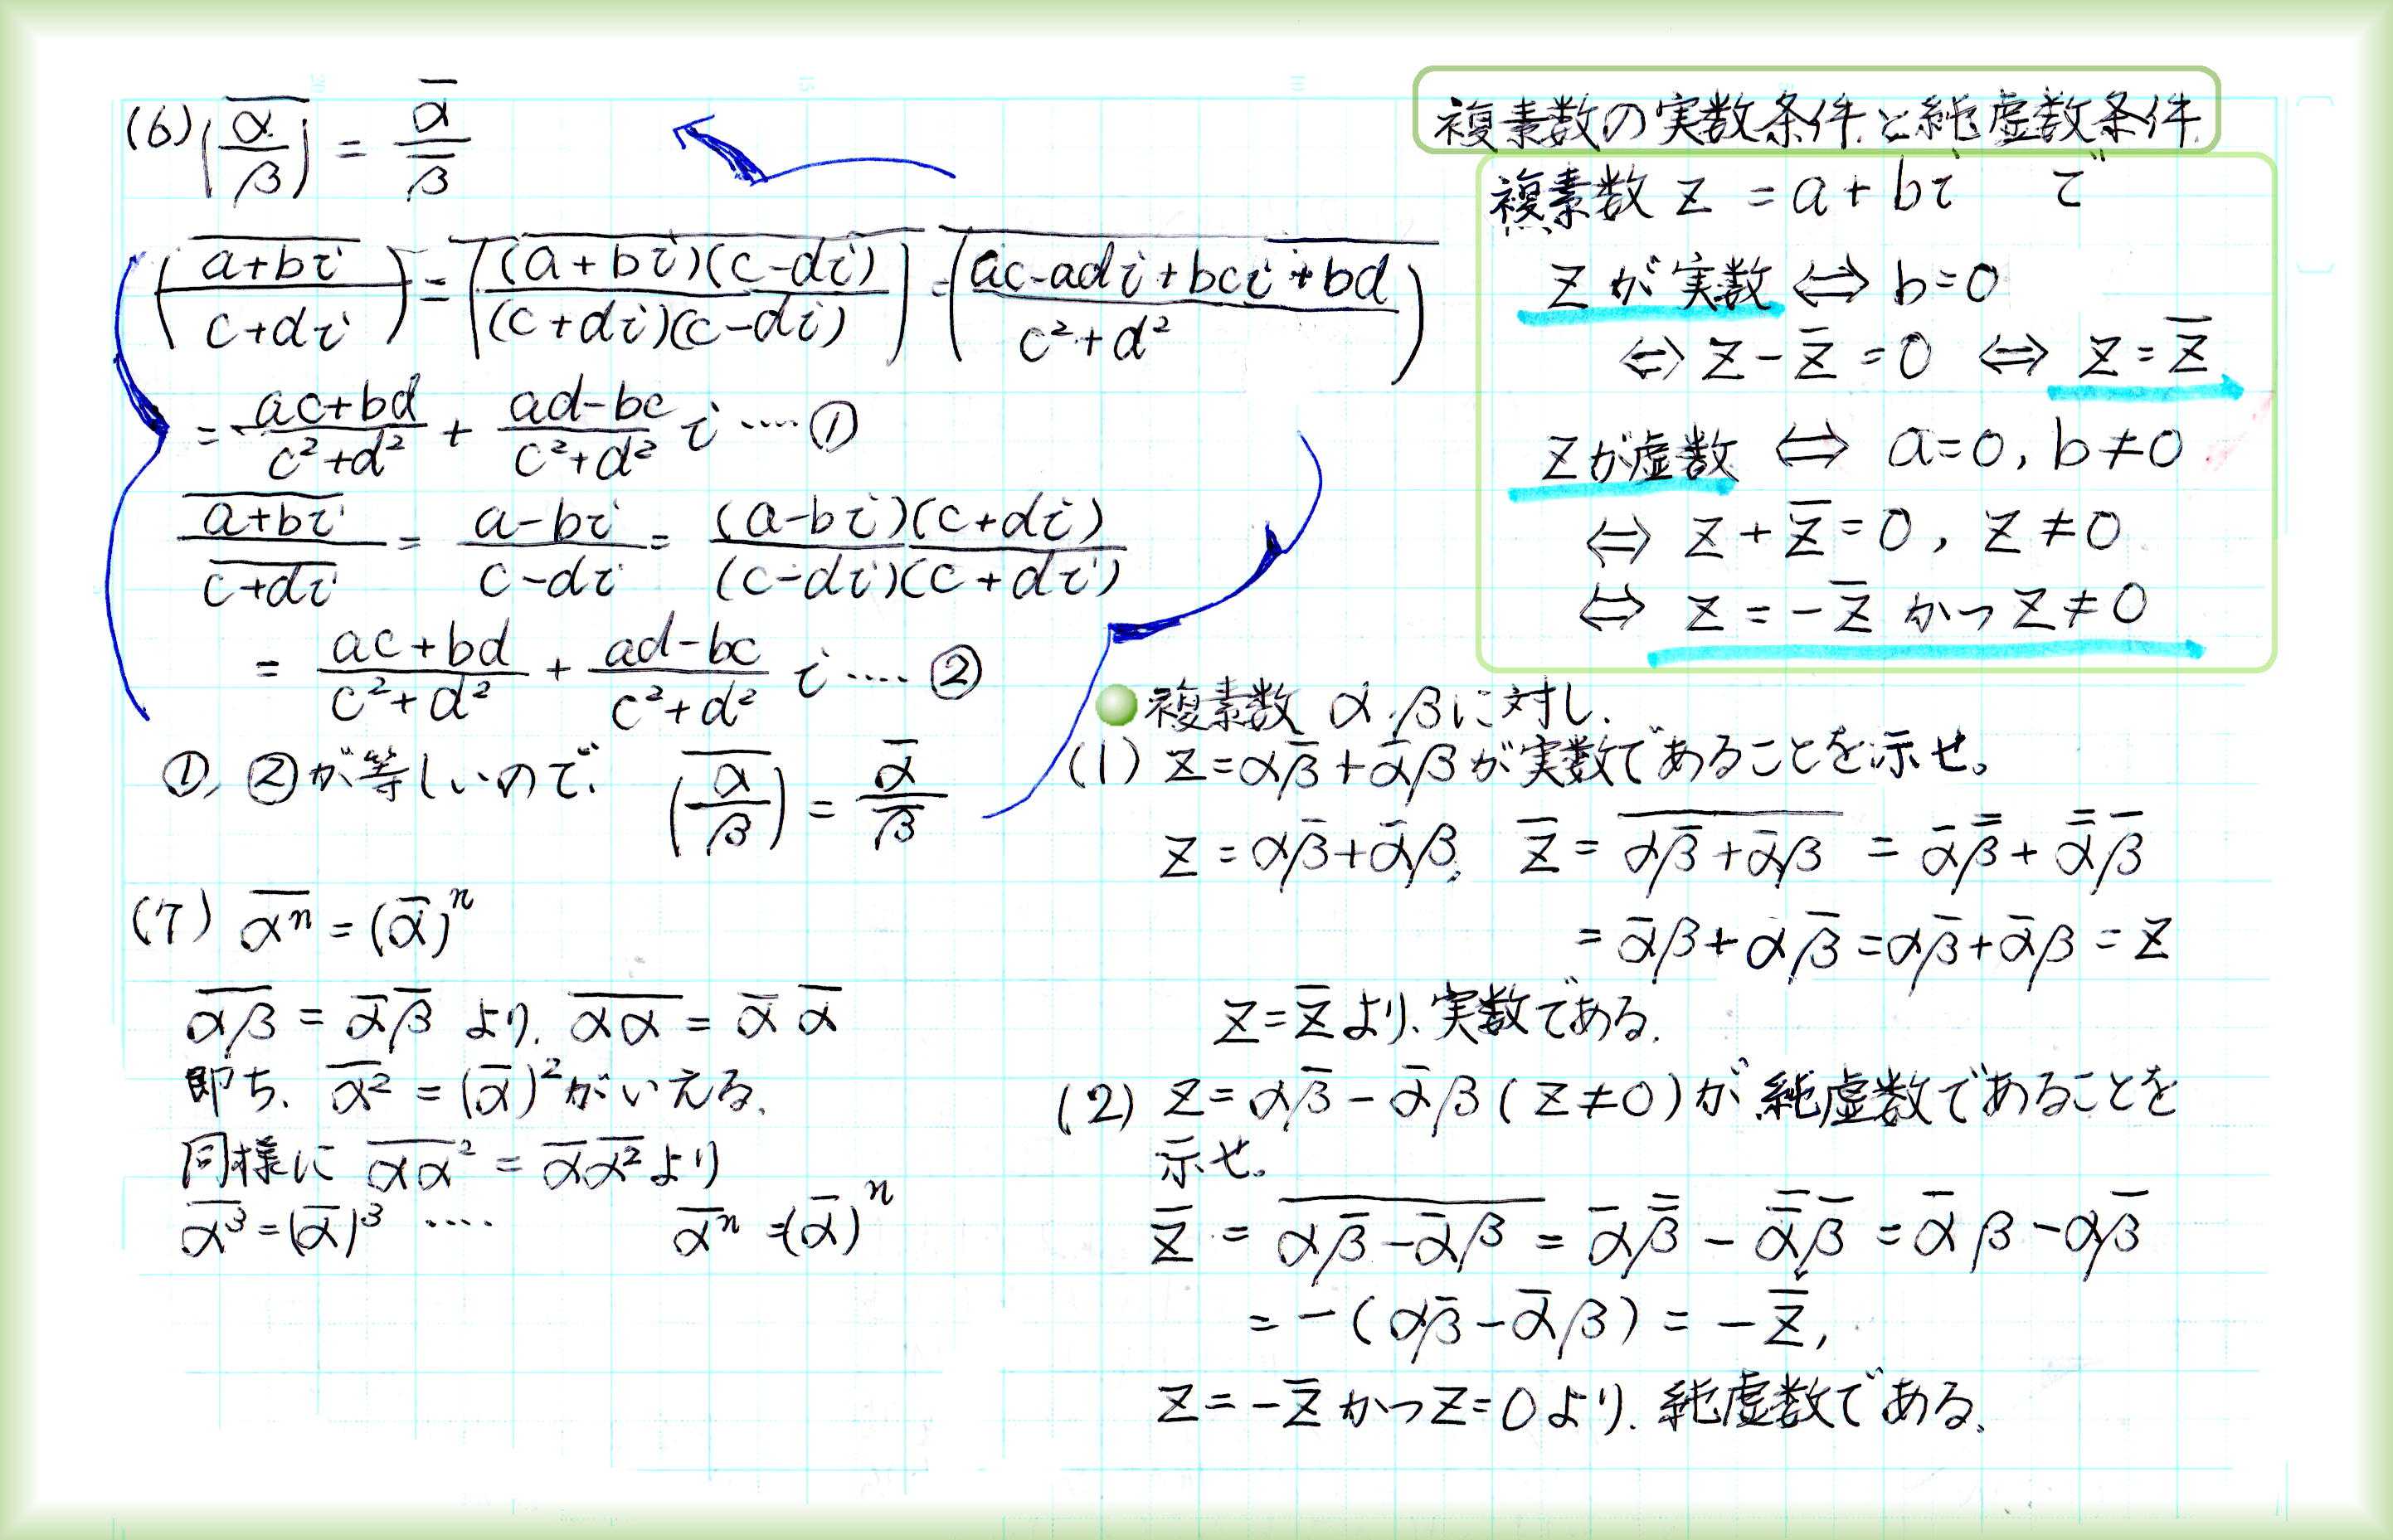 (6) \overline{(α/β)} = \overline{α}/\overline{β}
\overline{((a+bi)/(c+di))} = \overline{((a+bi)(c-di)/(c+di)(c-di))} = \overline{((ac-adi+bci+bd)/(c²+d²))}
= (ac+bd)/(c²+d²) + (ad-bc)/(c²+d²) i ‥‥①
\overline{a+bi}/\overline{c+di} = (a-bi)/(c-di) = (a-bi)(c+di)/(c-di)(c+di)
= (ac+bd)/(c²+d²) + (ad-bc)/(c²+d²) i ‥‥②
①, ②が等しいので、 \overline{(α/β)} = \overline{α}/\overline{β}
(7) \overline{αⁿ} = (\overline{α})ⁿ
\overline{αβ} = \overline{α}\overline{β} より、\overline{αα} = \overline{α}\overline{α}
即ち、\overline{α²} = (\overline{α})²がいえる、
同様に \overline{αα}² = \overline{α}\overline{α²}より
\overline{α³} = (\overline{α})³ ‥‥ \overline{αⁿ} = (\overline{α})ⁿ
複素数の実数条件と純虚数条件
複素数 z = a + bi で
zが実数 ⇔ b=0
⇔ z-\overline{z} = 0 ⇔ z = \overline{z}
zが虚数 ⇔ a=0, b≠0
⇔ z+\overline{z} = 0, z≠0
⇔ z = -\overline{z} かつ z≠0
複素数 α, βに対し、
(1) z=α\overline{β}+\overline{α}βが実数であることを示せ。
z = α\overline{β}+\overline{α}β, \overline{z} = \overline{α\overline{β}+\overline{α}β} = \overline{α}\overline{\overline{β}} + \overline{\overline{α}}\overline{β}
= \overline{α}β+α\overline{β} = α\overline{β}+\overline{α}β = z
z=\overline{z}より、実数である。
(2) z=α\overline{β}-\overline{α}β (z≠0)が純虚数であることを
示せ。
\overline{z} = \overline{α\overline{β}-\overline{α}β} = \overline{α}\overline{\overline{β}} - \overline{\overline{α}}\overline{β} = \overline{α}β-α\overline{β}
= -(α\overline{β}-\overline{α}β) = -\overline{z},
z=-\overline{z}かつz=0より、純虚数である。